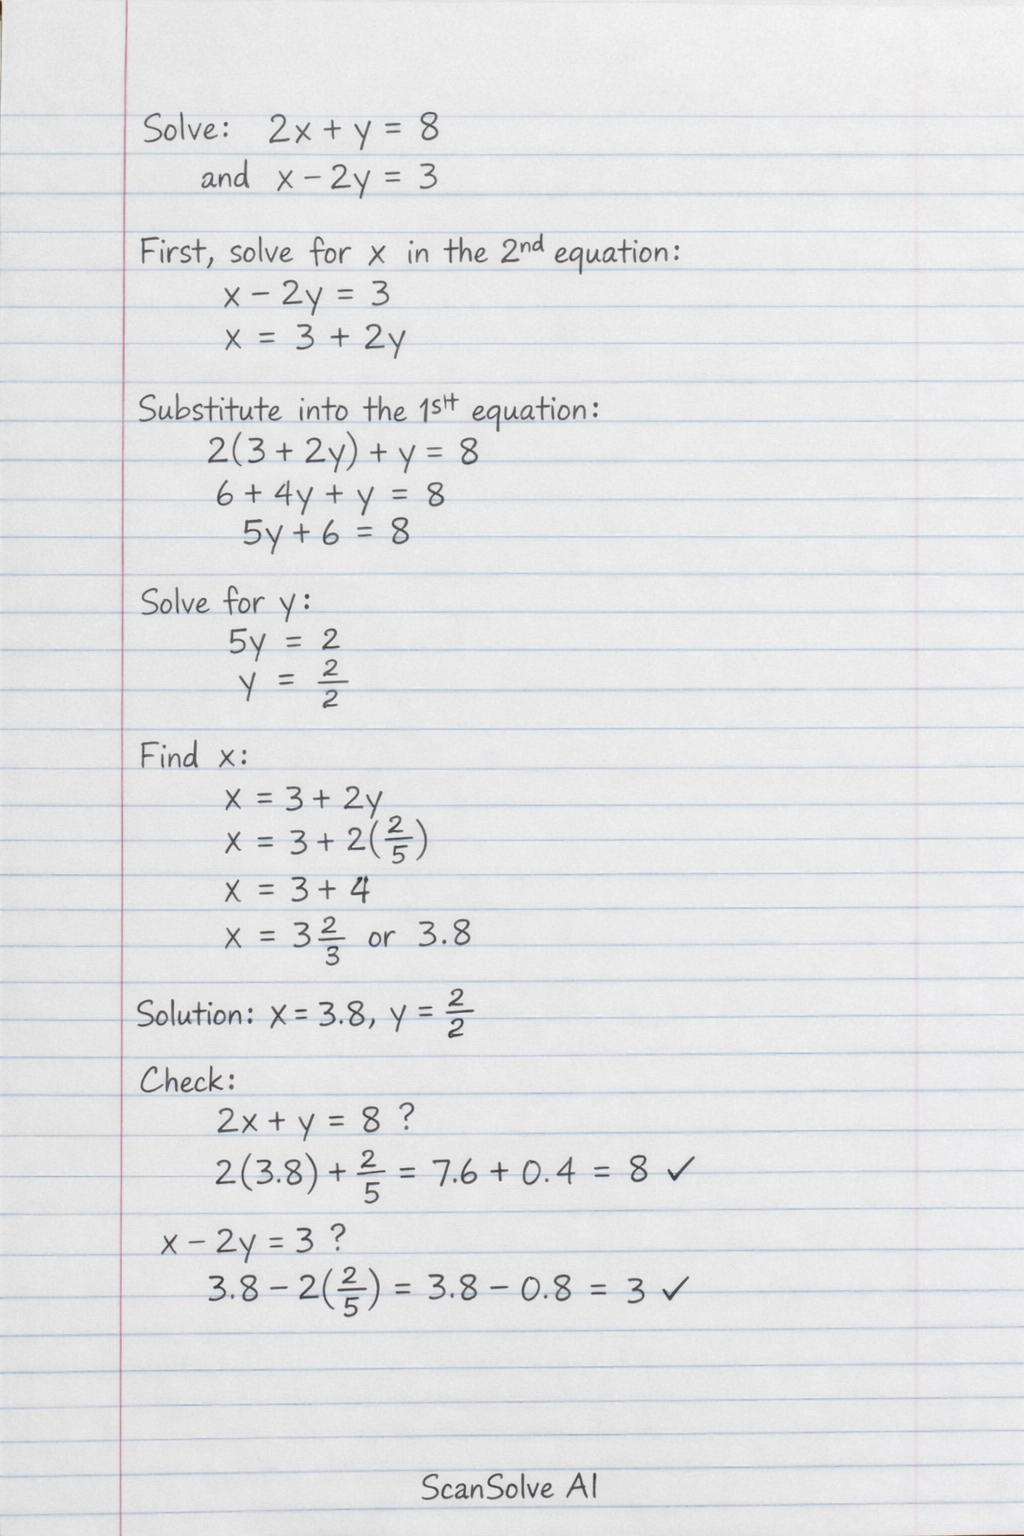 Solve: 2x + y = 8
and x - 2y = 3
First, solve for x in the 2nd equation:
x - 2y = 3
x = 3 + 2y
Substitute into the 1st equation:
2(3 + 2y) + y = 8
6 + 4y + y = 8
5y + 6 = 8
Solve for y:
5y = 2
y = 2/2
Find x:
x = 3 + 2y
x = 3 + 2(2/5)
x = 3 + 4
x = 3 2/3 or 3.8
Solution: x = 3.8, y = 2/2
Check:
2x + y = 8 ?
2(3.8) + 2/5 = 7.6 + 0.4 = 8 ✓
x - 2y = 3 ?
3.8 - 2(2/5) = 3.8 - 0.8 = 3 ✓
ScanSolve AI